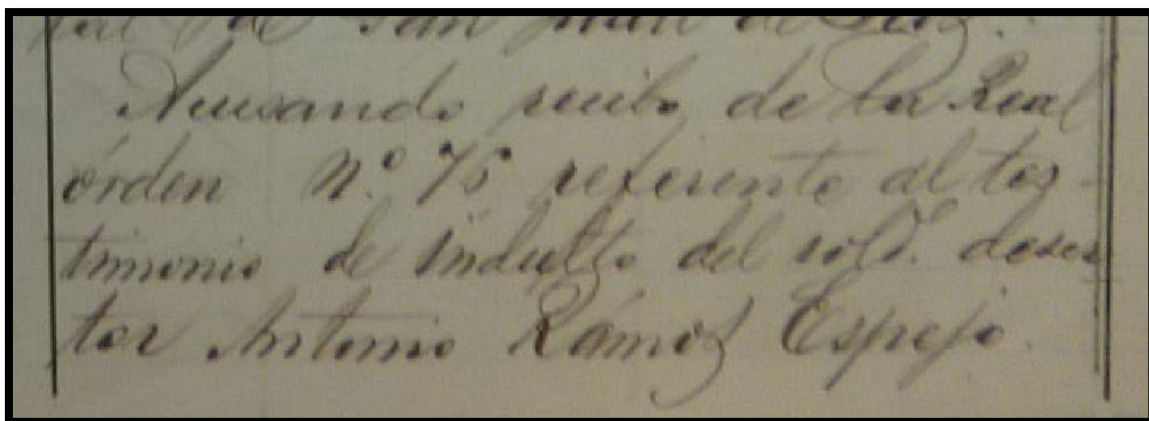 de San Juan de Luz.
Acusando recibo de la Real
órden N.º 75 referente al tes-
timonio de indulto del sold.º deser
tor Antonio Rámos Espejo.